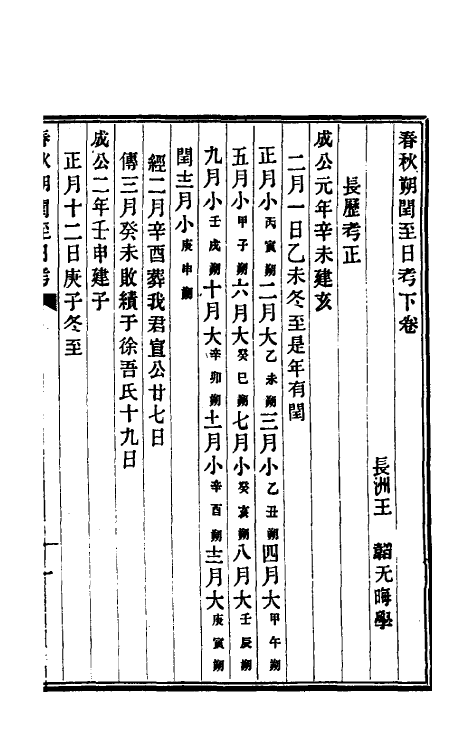 春秋朔閏至日考下卷
長洲王 韜无晦學
長歷考正
成公元年辛未建亥
二月一日乙未冬至是年有閏
正月小丙寅朔二月大乙未朔三月小乙丑朔四月大甲午朔
五月小甲子朔六月大癸巳朔七月小癸亥朔八月大壬辰朔
九月小壬戌朔十月大辛卯朔十一月小辛酉朔十二月大庚寅朔
閏十二月小庚申朔
經二月辛酉葬我君宣公廿七日
傳三月癸未敗績于徐吾氏十九日
成公二年壬申建子
正月十二日庚子冬至
春秋朔閏至日考